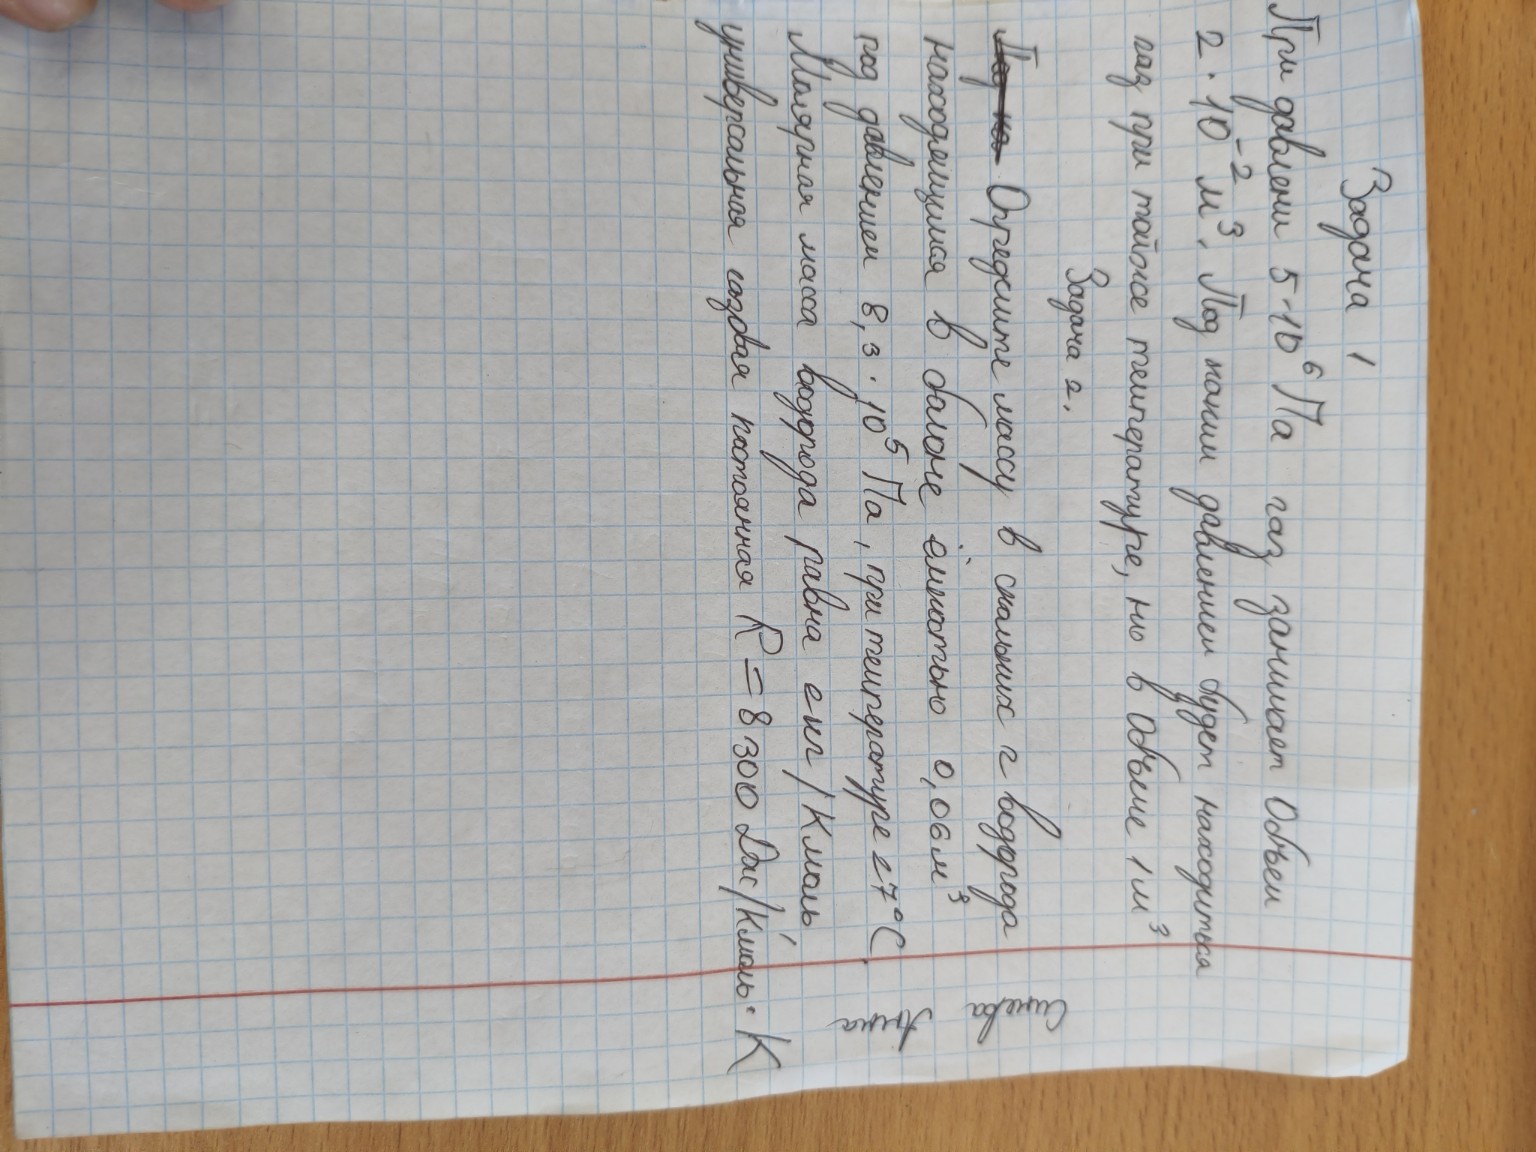 Задача 1
При давлени 5·10⁶ Па газ занимает Объем
2·10⁻² м³. Под каким давлением будет находиться
газ при тойже температуре, но в Объеме 1 м³
Задача 2.
Определите массу в скольких г водорода
находящимся в балоне ёмкостью 0,06 м³
под давлением 8,3·10⁵ Па, при температуре 27°С.
Малярная масса водорода равна 2 кг/Кмоль
универсальная газовая постоянная R = 8300 Дж/Кмоль·К
Анна